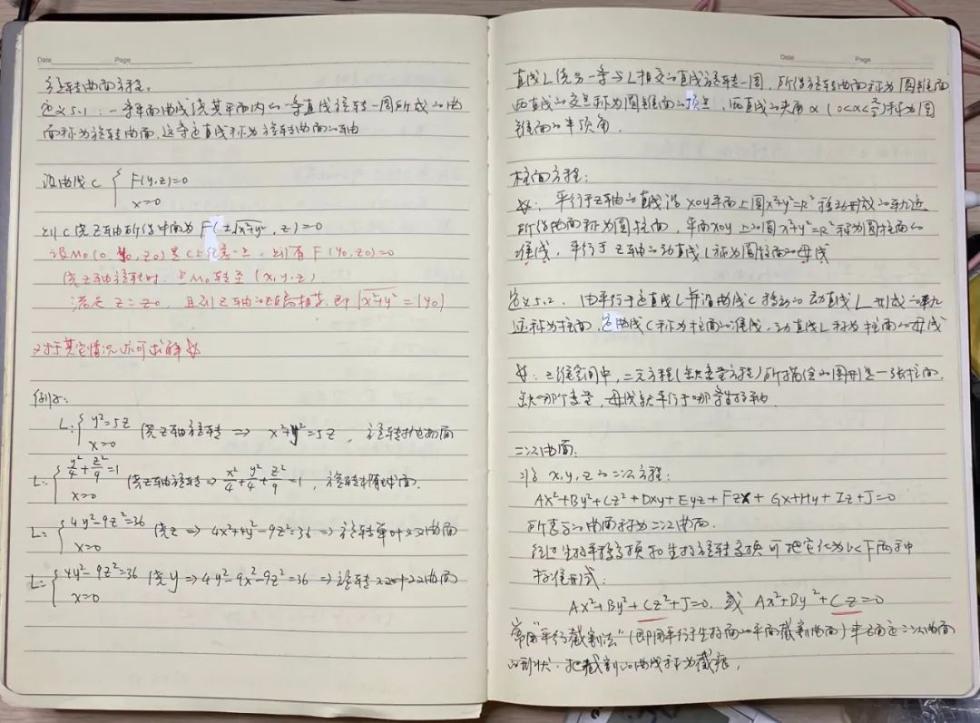 Date Page
旋转曲面方程.
定义5.1: 一条平面曲线绕其平面内的一条直线旋转一周所成的曲
面称为旋转曲面,这条定直线称为旋转曲面的轴
设曲线C { F(y,z)=0
x=0
则C绕Z轴所得曲面为 F(±√x²+y², z)=0
设M₀(0, y₀, z₀)是C上任意一点, 则有 F(y₀,z₀)=0
绕z轴旋转时, 点M₀转至(x,y,z)
满足 z=z₀, 且到Z轴的距离相等,即 √x²+y² = |y₀|
对于其它情况亦可求解
例:
L: { y²=5z 绕z轴旋转 ⇒ x²+y²=5z, 旋转抛物面
x=0
L: { y²/4+z²/9=1 绕z轴旋转 ⇒ x²/4+y²/4+z²/9=1, 旋转椭球面.
x=0
L: { 4y²-9z²=36 绕z ⇒ 4x²+4y²-9z²=36 ⇒ 旋转单叶双曲面
x=0
L: { 4y²-9z²=36 绕y ⇒ 4y²-9x²-9z²=36 ⇒ 旋转双叶双曲面
x=0
Date Page
直线L绕另一条与L相交的直线旋转一周, 所得旋转曲面称为圆锥面
两直线的交点称为圆锥面的顶点, 两直线的夹角α(0<α<π/2)称为圆
锥面的半顶角.
柱面方程:
平行于Z轴的直线沿xoy平面上圆x²+y²=R²移动形成的轨迹
所得曲面称为圆柱面, 平面xoy上的圆x²+y²=R²称为圆柱面的
准线, 平行于Z轴的动直线L称为圆柱面的母线
定义5.2. 由平行于定直线L并沿曲线C移动的动直线L形成的轨
迹称为柱面,定曲线C称为柱面的准线,动直线L称为柱面的母线
: 三维空间中,二元方程(缺变量方程)所描绘的图形是一张柱面.
缺哪个变量,母线就平行于哪条坐标轴.
二次曲面.
x,y,z的二次方程:
Ax²+By²+Cz²+Dxy+Eyz+Fzx+Gx+Hy+Iz+J=0
所表示的曲面称为二次曲面.
经过坐标平移变换和坐标旋转变换可把它化为以下两种
标准形式:
Ax²+By²+Cz²+J=0. 或 Ax²+By²+Cz=0
常用"平行截割法"(即用平行于坐标面的平面截割曲面)来确定二次曲面
的形状. 把截割的曲线称为截痕.